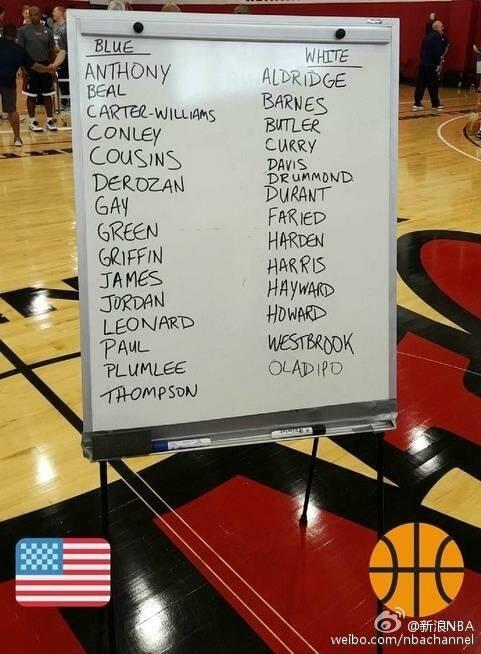 BLUE
ANTHONY
BEAL
CARTER-WILLIAMS
CONLEY
COUSINS
DEROZAN
GAY
GREEN
GRIFFIN
JAMES
JORDAN
LEONARD
PAUL
PLUMLEE
THOMPSON
WHITE
ALDRIDGE
BARNES
BUTLER
CURRY
DAVIS
DRUMMOND
DURANT
FARIED
HARDEN
HARRIS
HAYWARD
HOWARD
WESTBROOK
OLADIPO
@新浪NBA
weibo.com/nbachannel